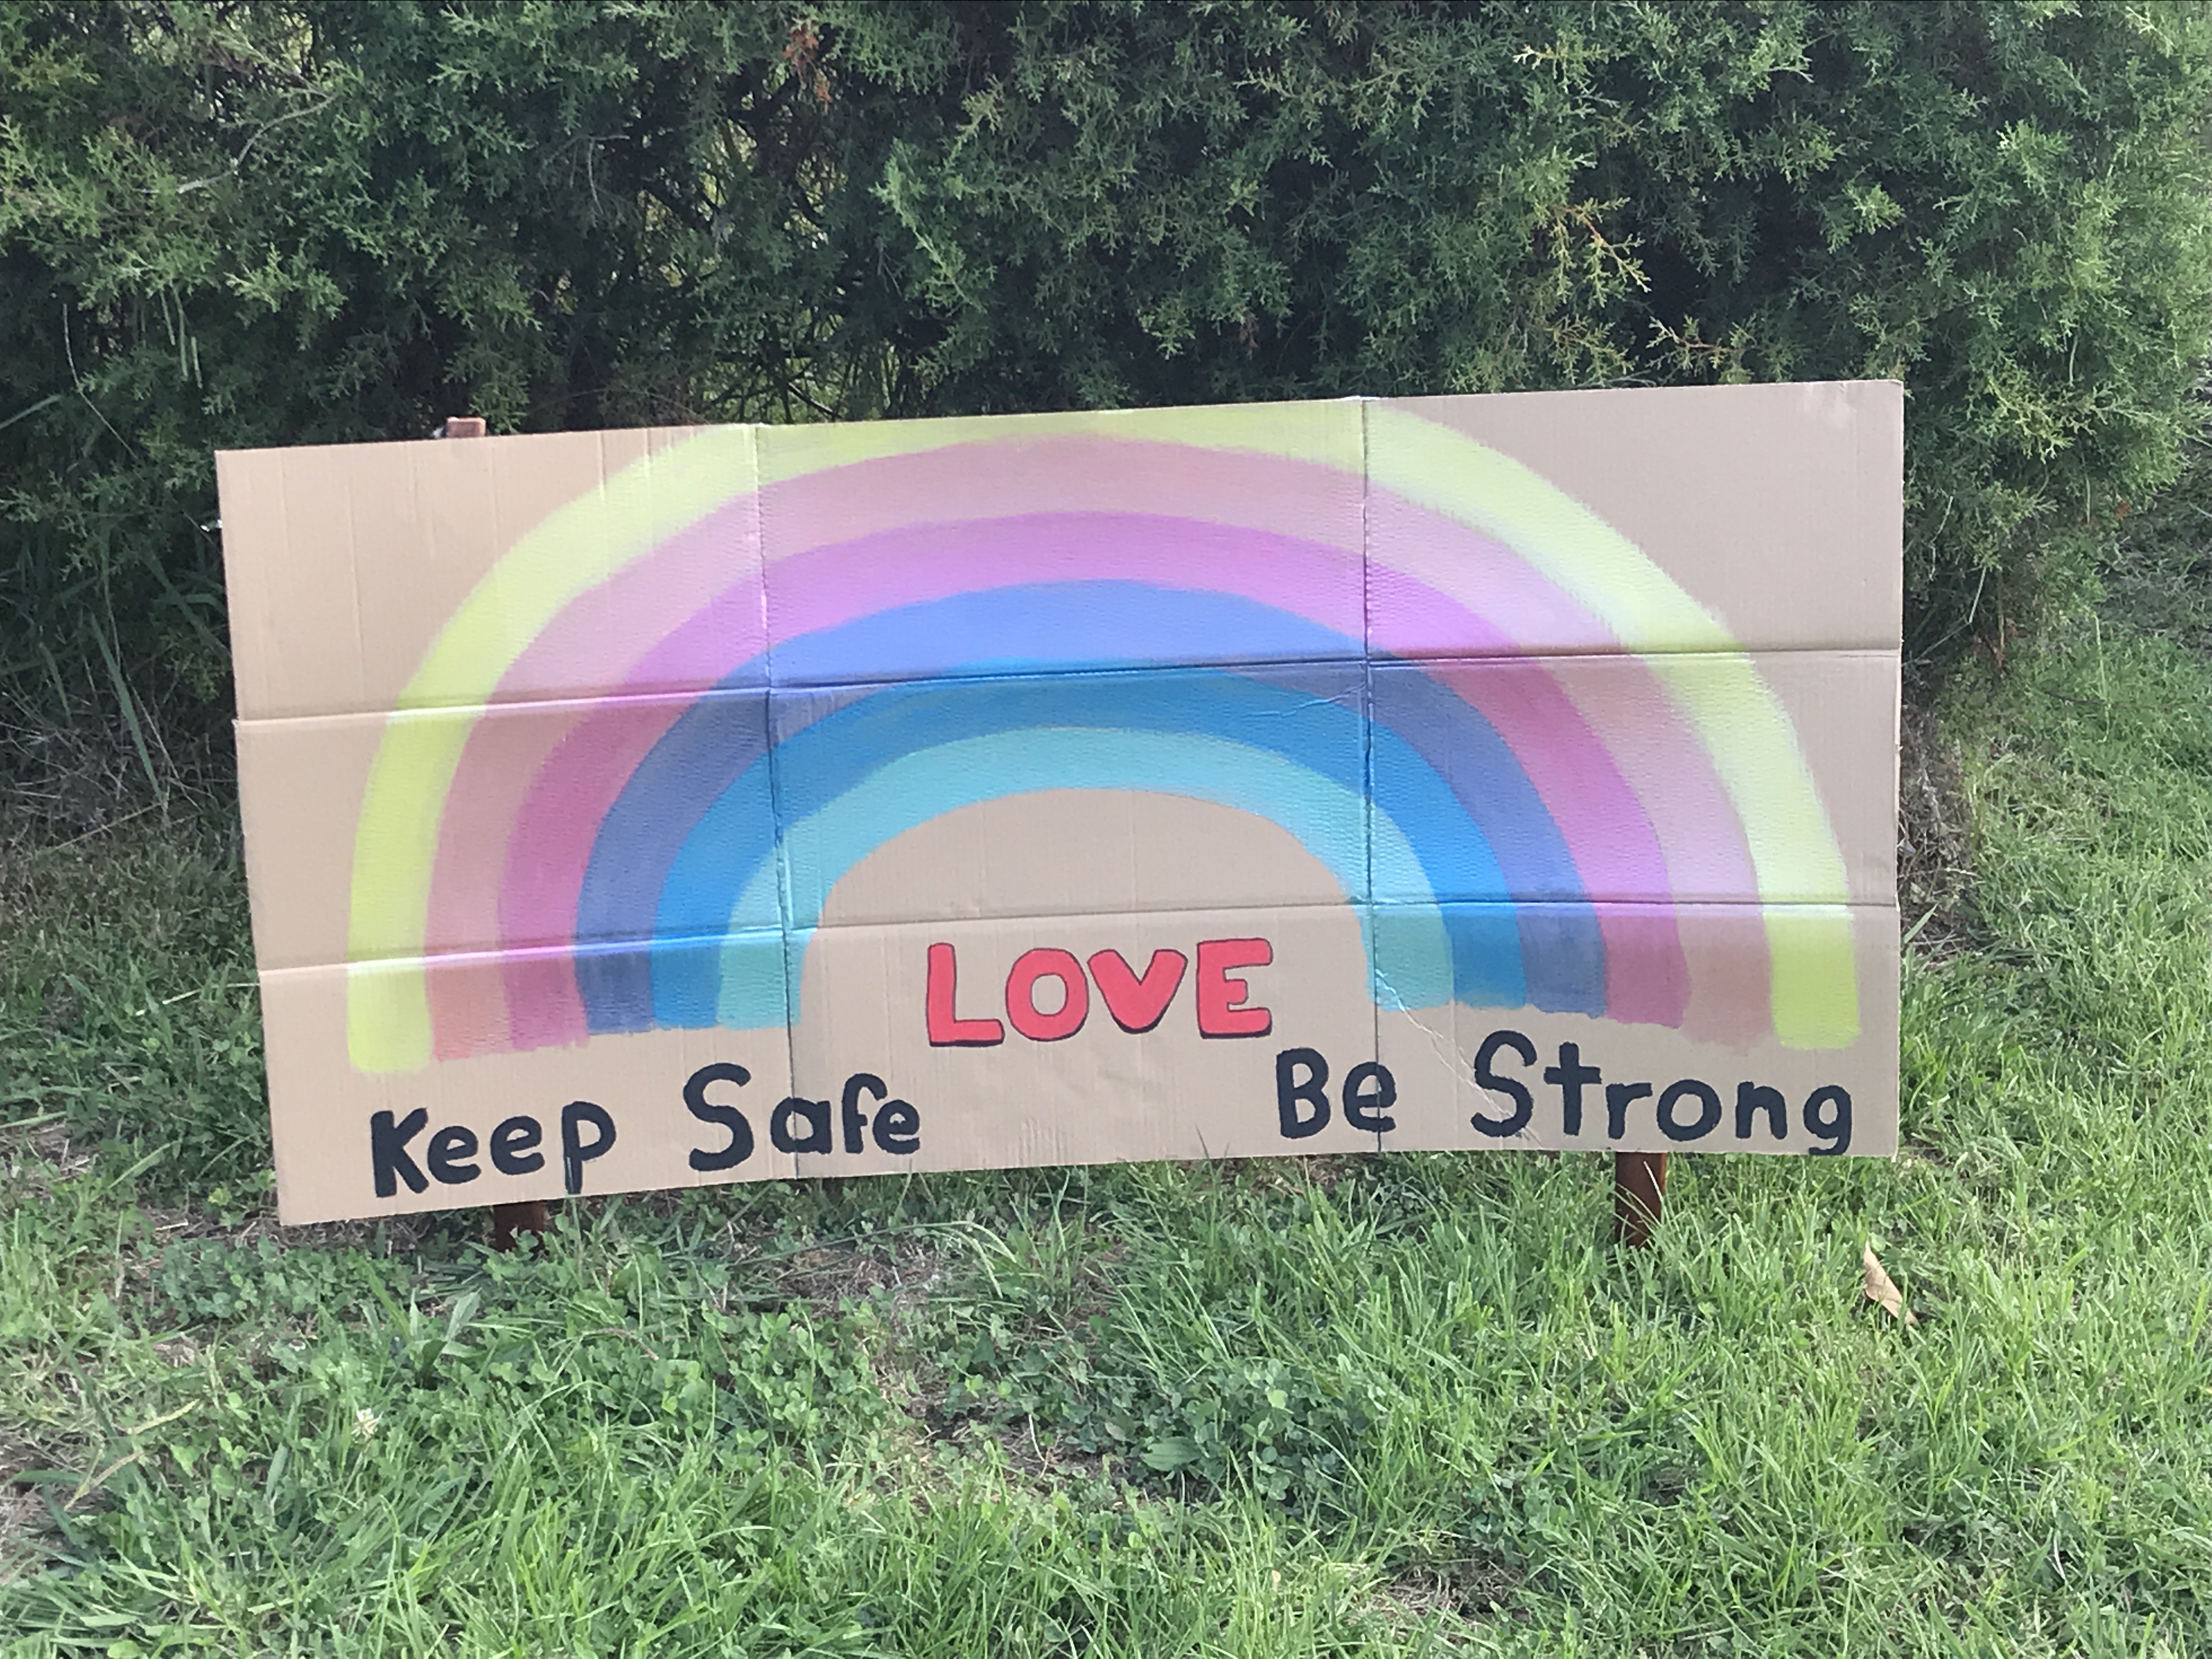 LOVE
Keep Safe
Be Strong